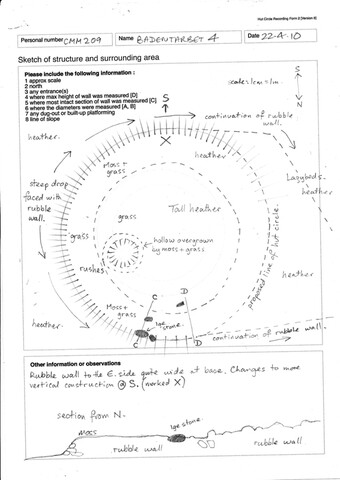 Hut Circle Recording Form 2 (Version 6)
Personal number CMM 209
Name BADENTARBET 4
Date 22-4-10
Sketch of structure and surrounding area
Please include the following information :
1 approx scale
2 north
3 any entrance(s)
4 where max height of wall was measured [D]
5 where most intact section of wall was measured [C]
6 where the diameters were measured [A, B]
7 any dug-out or built-up platforming
8 line of slope
S
S
scale = 1cm = 1m.
N
continuation of rubble
wall.
heather.
X
heather
Moss +
grass
Lazybeds +
heather
steep drop
faced with
rubble
wall.
Tall heather
grass
grass
hollow overgrown
by moss + grass
rushes
proposed line of hut circle.
heather
Moss +
grass
C
D
lge stone.
heather
C
D
continuation of rubble wall.
Other information or observations
Rubble wall to the E. side quite wide at base. Changes to more
vertical construction @ S. (marked X)
section from N.
moss
lge stone.
rubble wall
rubble wall